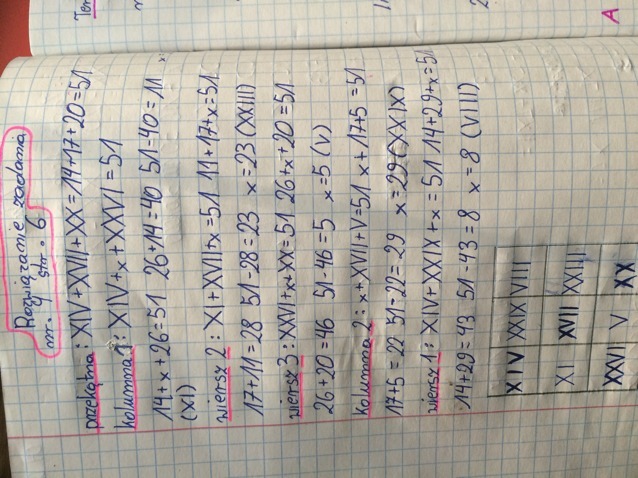 Rozwiązanie zadania
nr. 4 str. 6
przekątna: XIV+XVII+XX=14+17+20=51
kolumna 1: XIV+x+XXVI=51
14+x+26=51 26+14=40 51-40=11
(XI)
wiersz 2: XI+XVII+x=51 11+17+x=51
17+11=28 51-28=23 x=23 (XXIII)
wiersz 3: XXVI+x+XX=51 26+x+20=51
26+20=46 51-46=5 x=5 (V)
kolumna 2: x+XVII+V=51 x+17+5=51
17+5=22 51-22=29 x=29 (XXIX)
wiersz 1: XIV+XXIX+x=51 14+29+x=51
14+29=43 51-43=8 x=8 (VIII)
XIV XXIX VIII
XI XVII XXIII
XXVI V XX
A